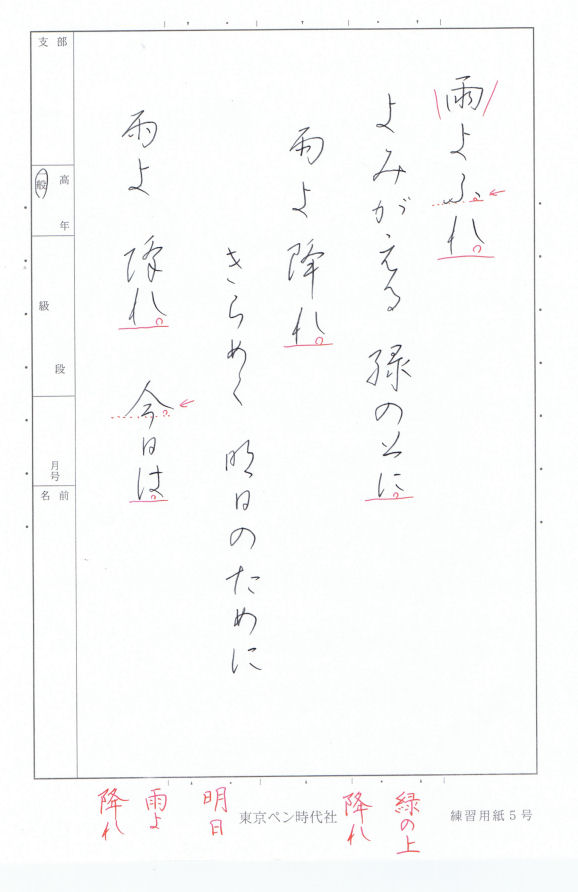 雨よふれ
よみがえる 緑の上に
雨よ 降れ
きらめく 明日のために
雨よ 降れ 今日は
支部
高年
一般
級
段
月号
名前
緑の上
降れ
明日
雨よ
降れ
東京ペン時代社
練習用紙5号